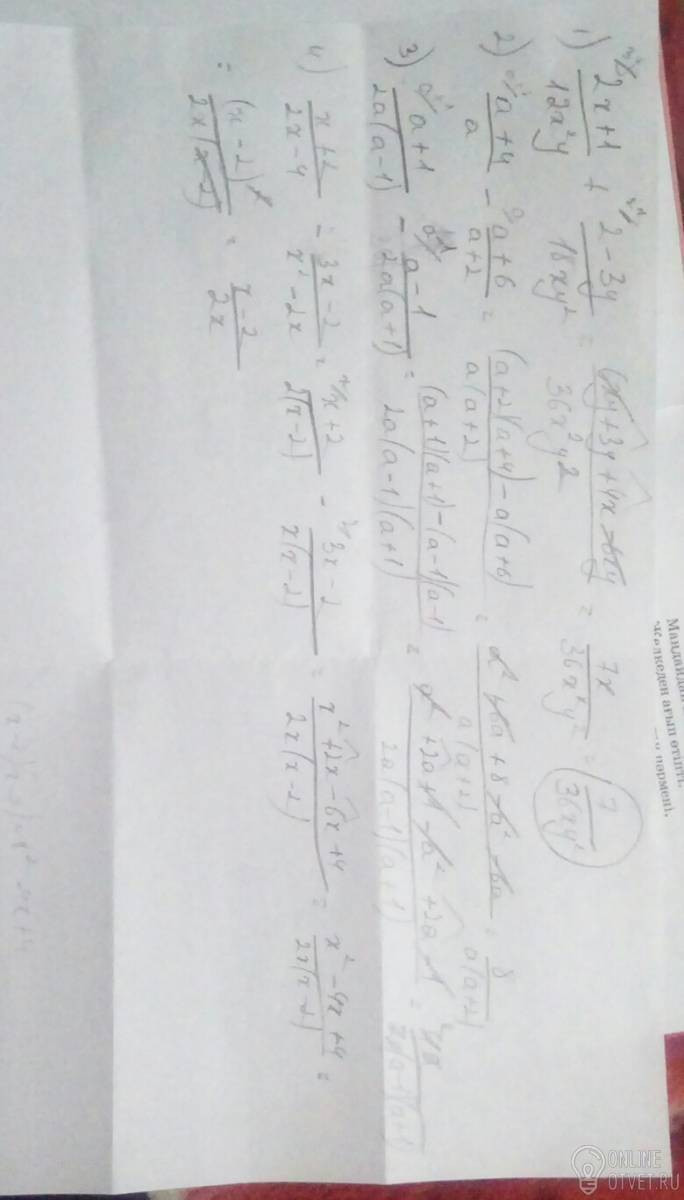 1) (2x+1)/(12x²y) + (2-3y)/(18xy²) = (6xy+3y+4x-6xy)/(36x²y²) = 7x/(36x²y²) = 7/(36xy²)
2) (a+4)/a - (a+6)/(a+2) = ((a+2)(a+4)-a(a+6))/(a(a+2)) = (a²+6a+8-a²-6a)/(a(a+2)) = 8/(a(a+2))
3) (a+1)/(2a(a-1)) - (a-1)/(2a(a+1)) = ((a+1)(a+1)-(a-1)(a-1))/(2a(a-1)(a+1)) = (a²+2a+1-a²+2a-1)/(2a(a-1)(a+1)) = 4a/(2a(a-1)(a+1))
4) (x+2)/(2x-4) - (3x-2)/(x²-2x) = (x+2)/(2(x-2)) - (3x-2)/(x(x-2)) = (x²+2x-6x+4)/(2x(x-2)) = (x²-4x+4)/(2x(x-2)) =
= (x-2)²/(2x(x-2)) = (x-2)/(2x)
Маңдайдан
ағып өтіпті.
ONLINE
OTVET.RU